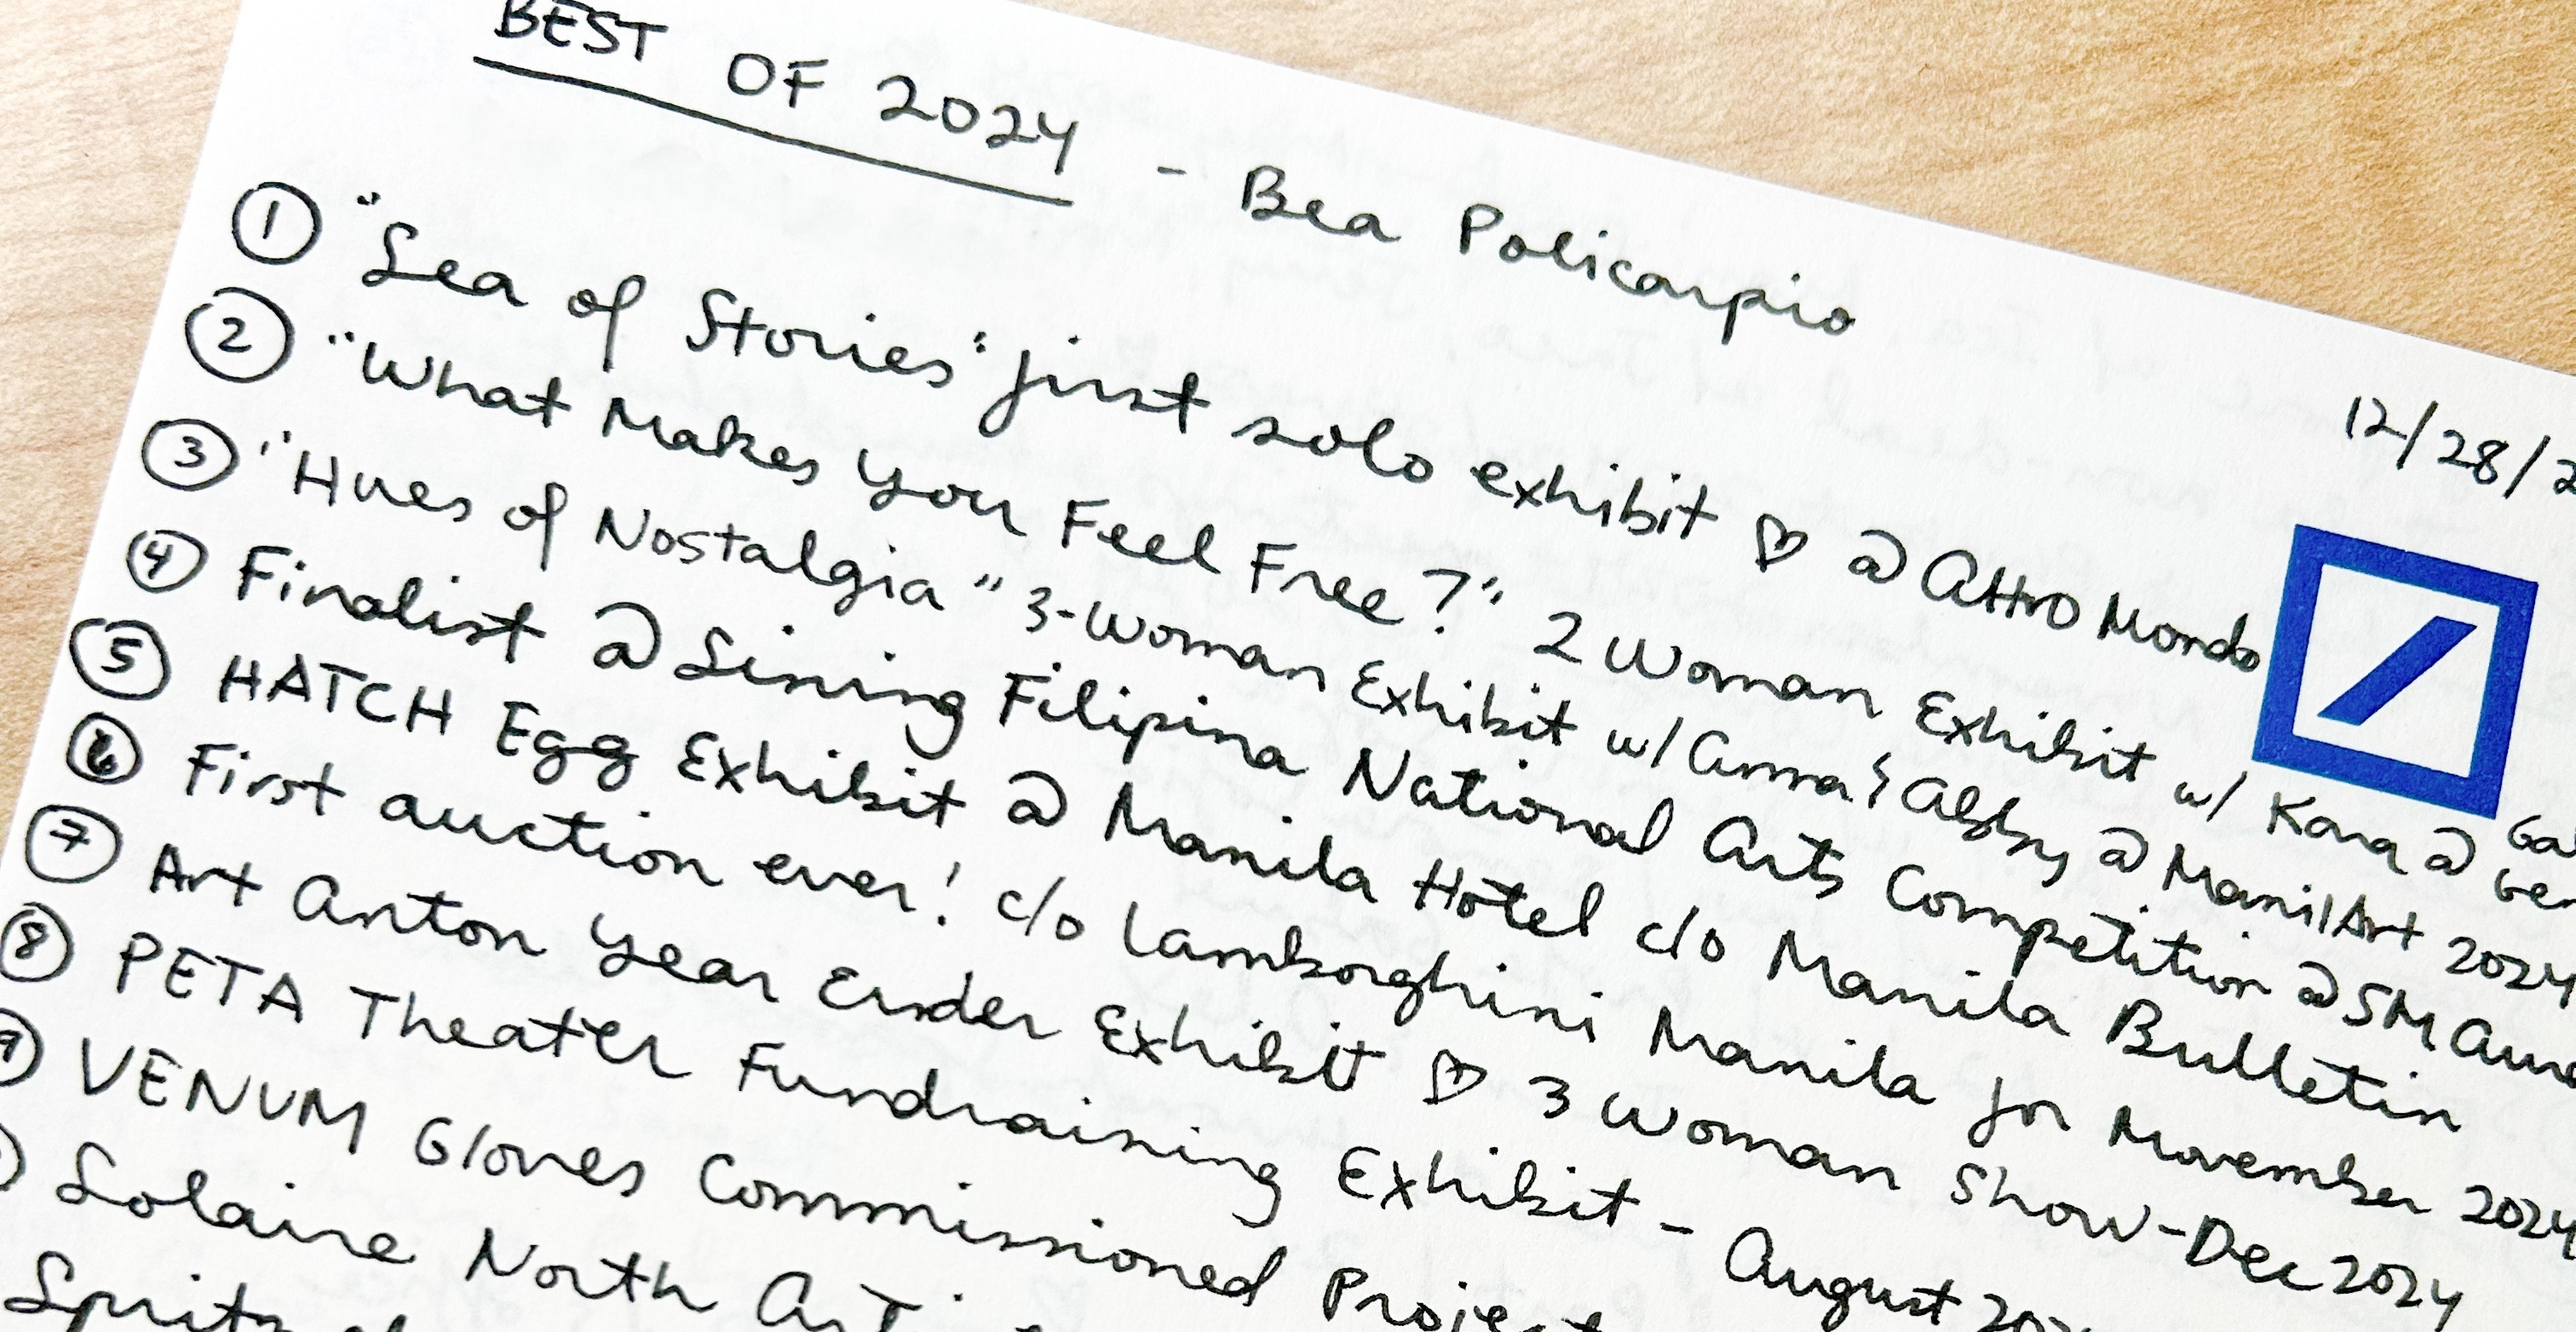 BEST OF 2024 - Bea Policarpio
12/28/2
① "Sea of Stories" first solo exhibit ♡ @ Altro Mondo
② "What Makes You Feel Free?" 2 Woman Exhibit w/ Kara @
③ "Hues of Nostalgia" 3-Woman Exhibit w/ Anna & Abby @ ManilArt 2024
④ Finalist @ Sining Filipina National Arts Competition @ SM Aura
⑤ HATCH Egg Exhibit @ Manila Hotel c/o Manila Bulletin
⑥ First auction ever! c/o Lamborghini Manila for Movember 2024
⑦ Art Anton Year Ender Exhibit ♡ 3 Woman Show - Dec 2024
⑧ PETA Theater Fundraising Exhibit - August 202
9 VENUM Gloves Commissioned Project
Solaire North
Spritz